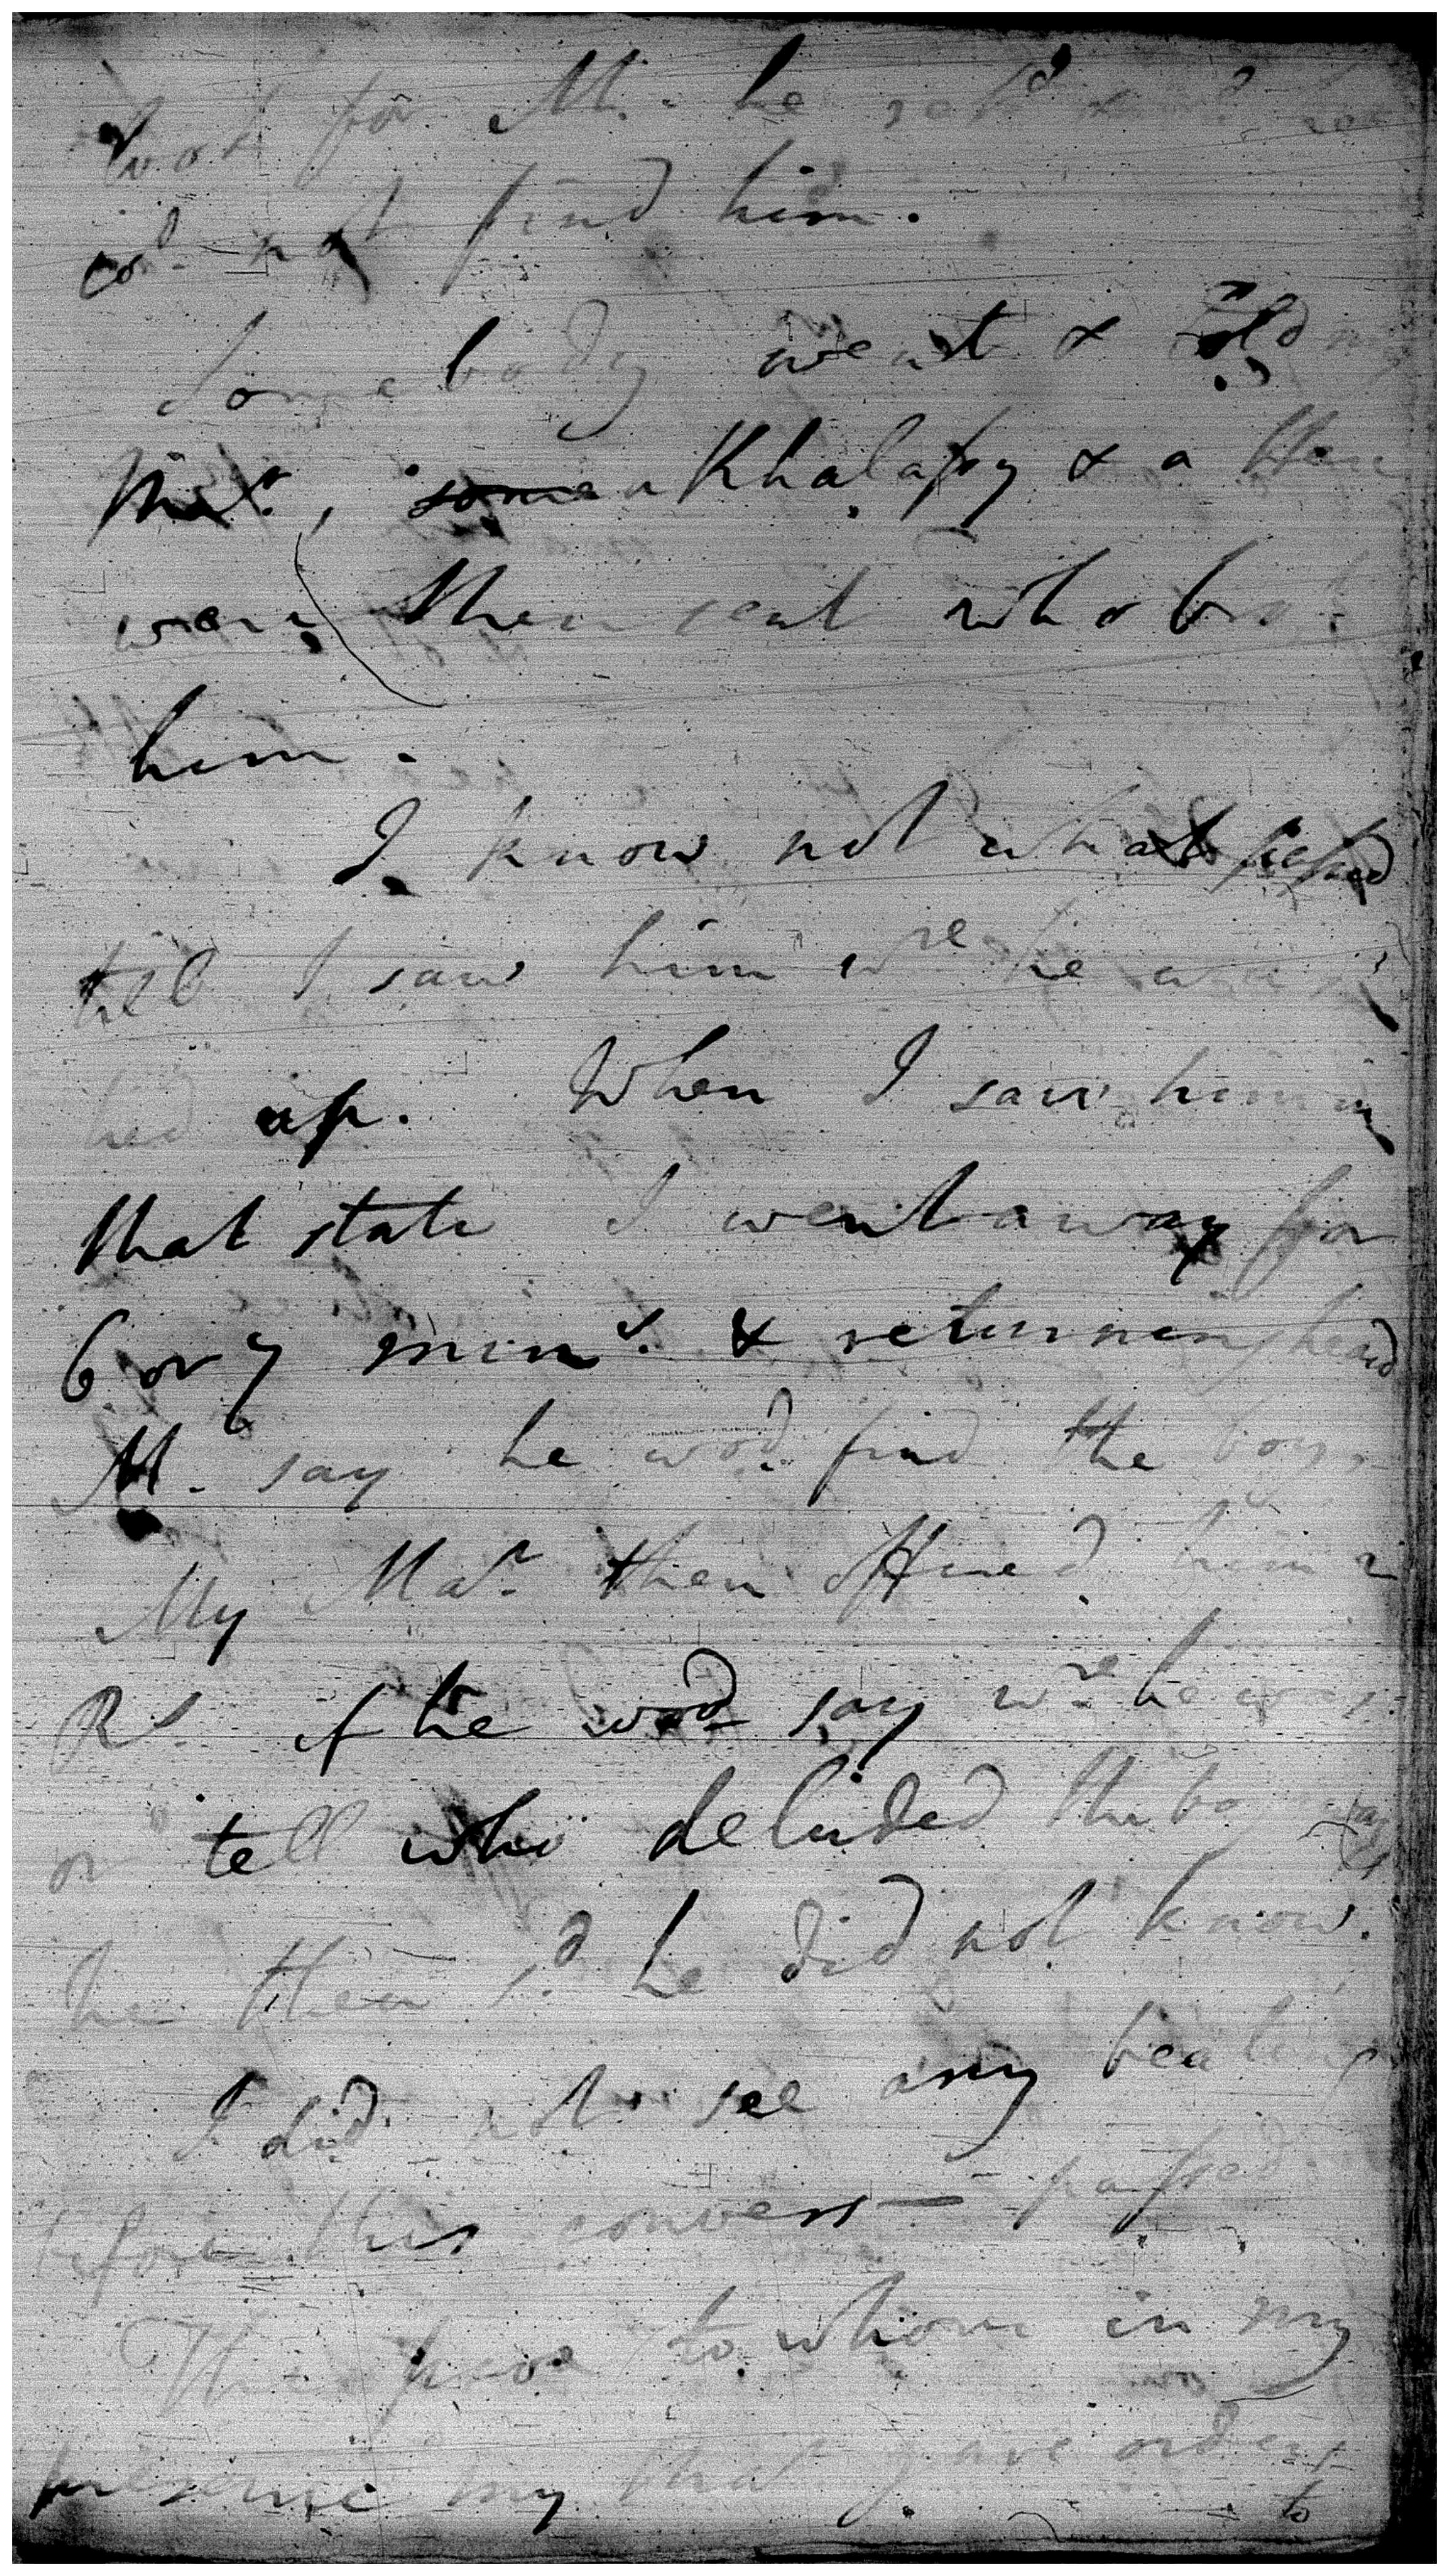 look for M. he ret^d & s^d he
co^d. not find him.
Somebody went & told my
Mas^r., <s>some</s> a Khalassy & a
were then sent who bro^t.
him.
I know not what passed
till I saw him w^re he was
tied up. When I saw him in
that state I went away for
6 or 7 min^s. & returning heard
M. say he wod. find the boy.
My Mas^r. then offered him 2
R^s. if he wod. say w^re he was
or tell who deluded the boy away
he then s^d. he did not know.
I did not see any beating
before this convers^n passed.
The peon to whom in my
presence my Mas^r gave orders
to